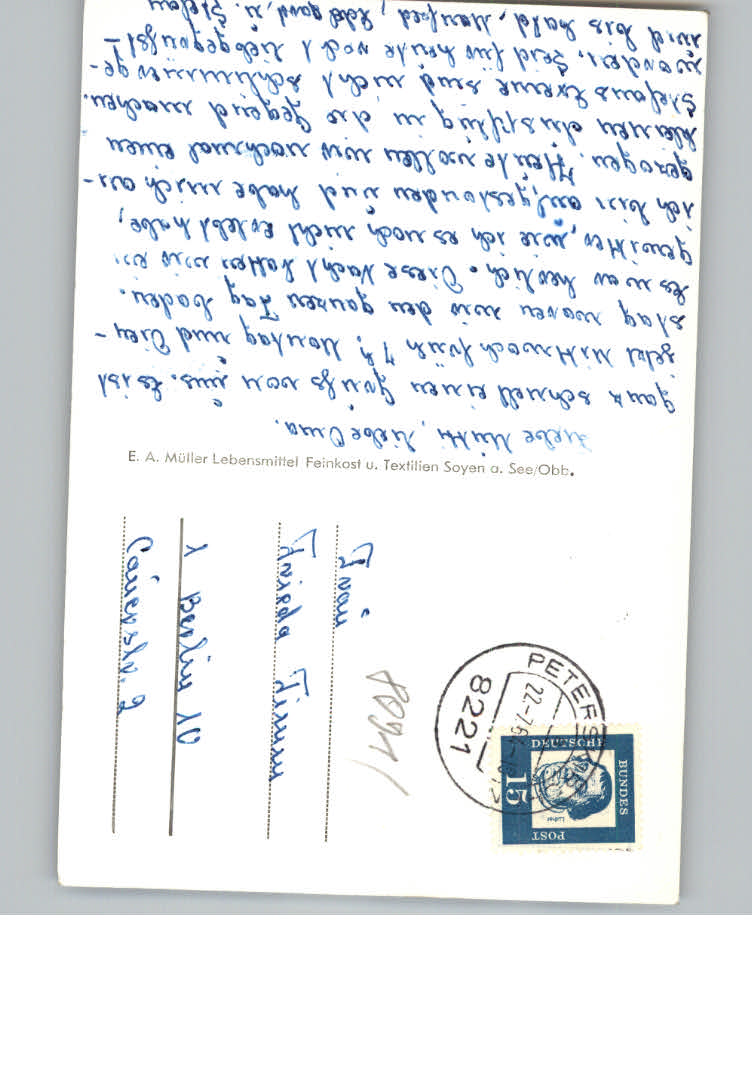 Liebe Mutti, liebe Oma.
ganz schnell einen Gruß von uns. Es ist
jetzt Mittwoch früh 7 h, Montag und Dien-
stag waren wir den ganzen Tag baden.
Es war herlich. Diese Nacht hatten wir ein
gewitter, wie ich es noch nicht erlebt habe,
ich bin aufgestanden und habe mich an-
gezogen. Heute wollen wir nochmal einen
kleinen Ausflug in die Gegend machen.
Stefans Beine sind nicht schlimmer ge-
worden. Seid für heute recht lieb gegrüßt
und bis bald, Manfred, u. Stefan
E. A. Müller Lebensmittel Feinkost u. Textilien Soyen a. See/Obb.
Frau
Frieda Timm
1 Berlin 10
Cauerstr. 2
8221
PETERS
22.-7.64
DEUTSCHE
BUNDES
POST
15
Luther